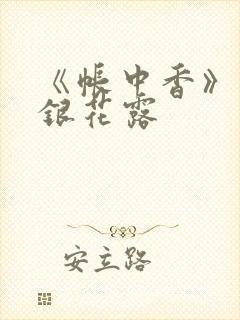 《帐中香》
银花露
安立路